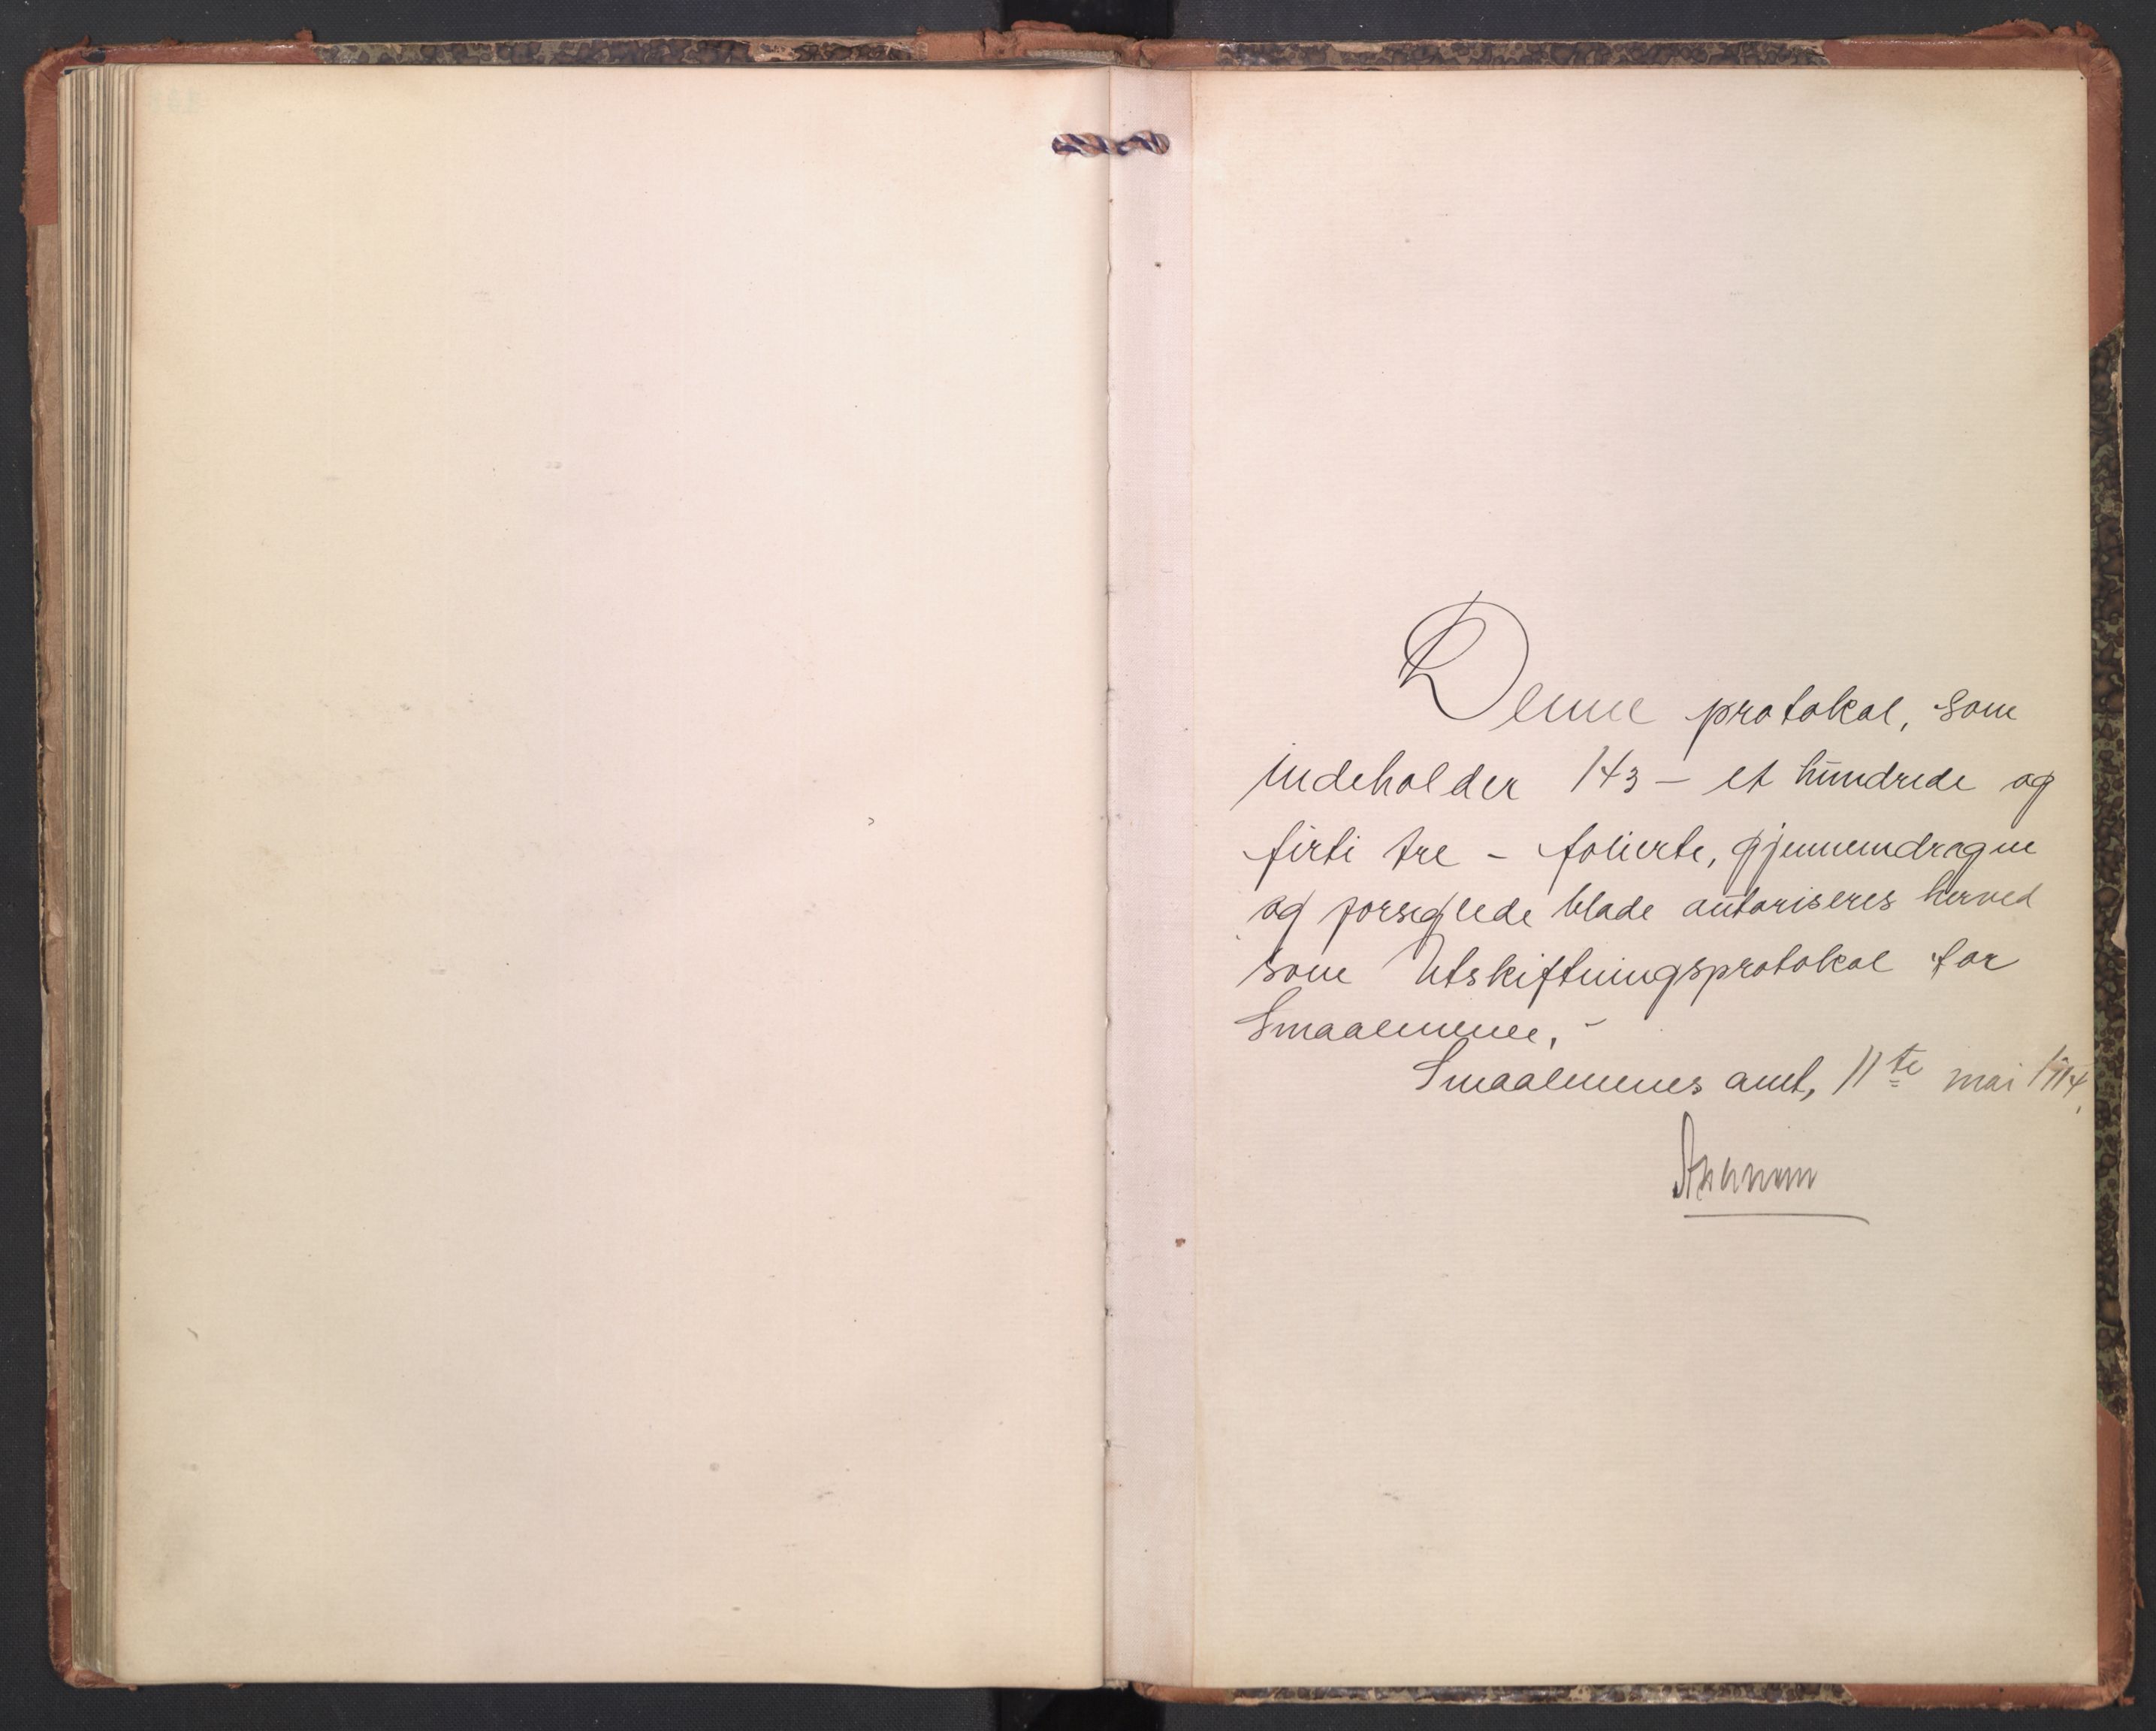 Denne protokol, som
indeholder 143 – et hundrede og
firti tre – folierte, gjennemdragne
og forseglede blade autoriseres herved
som Utskiftningsprotokol for
Smaalenene. –
Smaalenenes amt, 11te mai 1914.